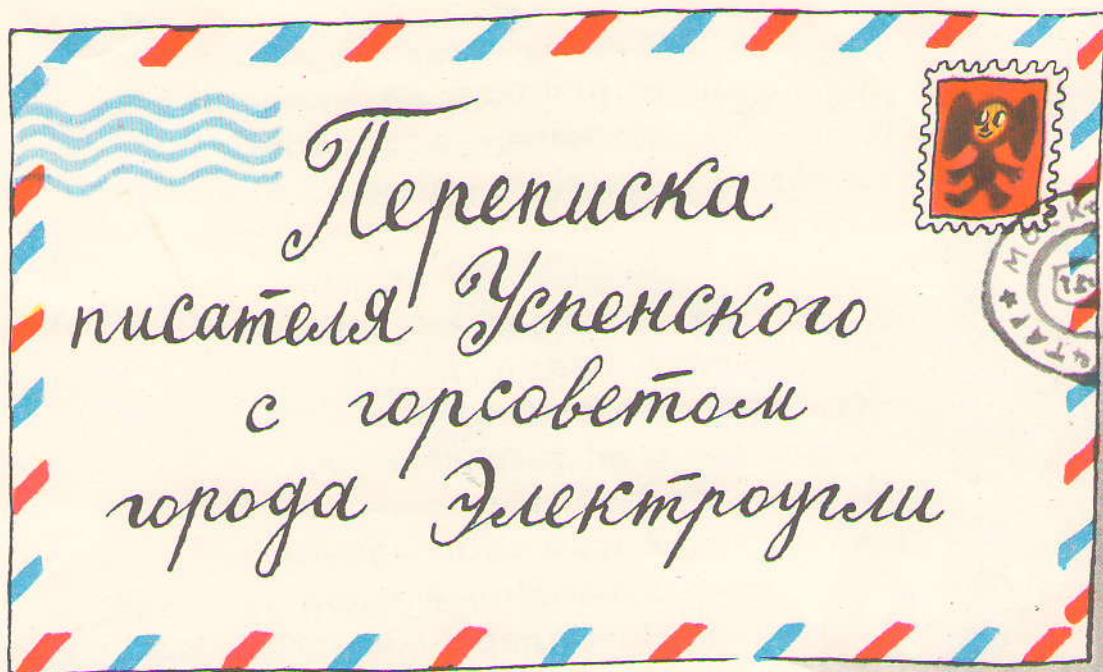 Переписка
писателя Успенского
с горсоветом
города Электроугли